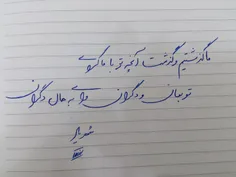 ما گذشتیم و گذشت آنچه تو با ما کردی
تو بمان و دگران وای به حال دگران
شهریار